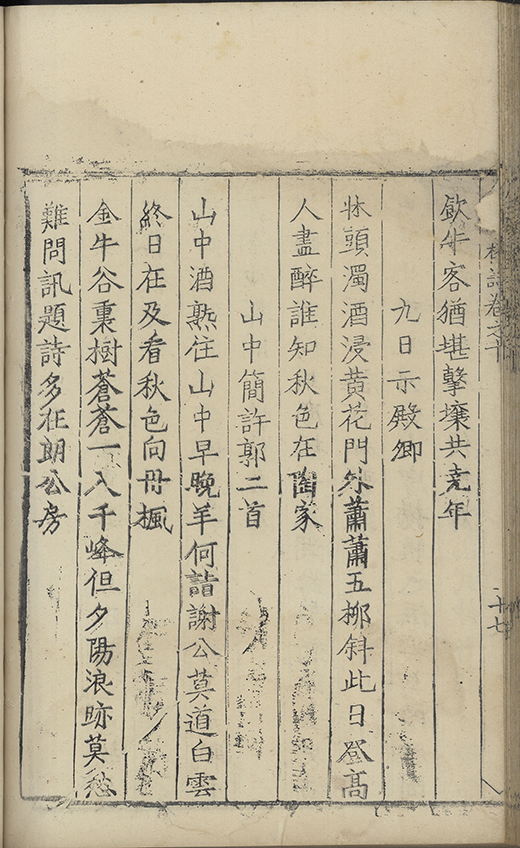 詩卷之十
十七
飲牛客猶堪擊壤共堯年
九日示殿卿
牀頭濁酒浸黃花門外蕭蕭五柳斜此日登高
人盡醉誰知秋色在陶家
山中簡許郭二首
山中酒熟住山中早晚羊何詣謝公莫道白雲
終日在及看秋色向丹楓
金牛谷裏樹蒼蒼一入千峰但夕陽浪跡莫愁
難問訊題詩多在朗公房